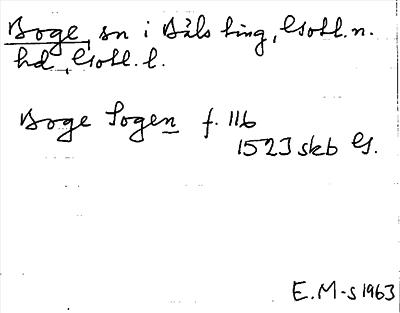 Boge, sn i Bäls ting, Gotl. n.
hd, Gotl. l.
Boge Sogen f. 116
1523 skb G.
E. M-s 1963